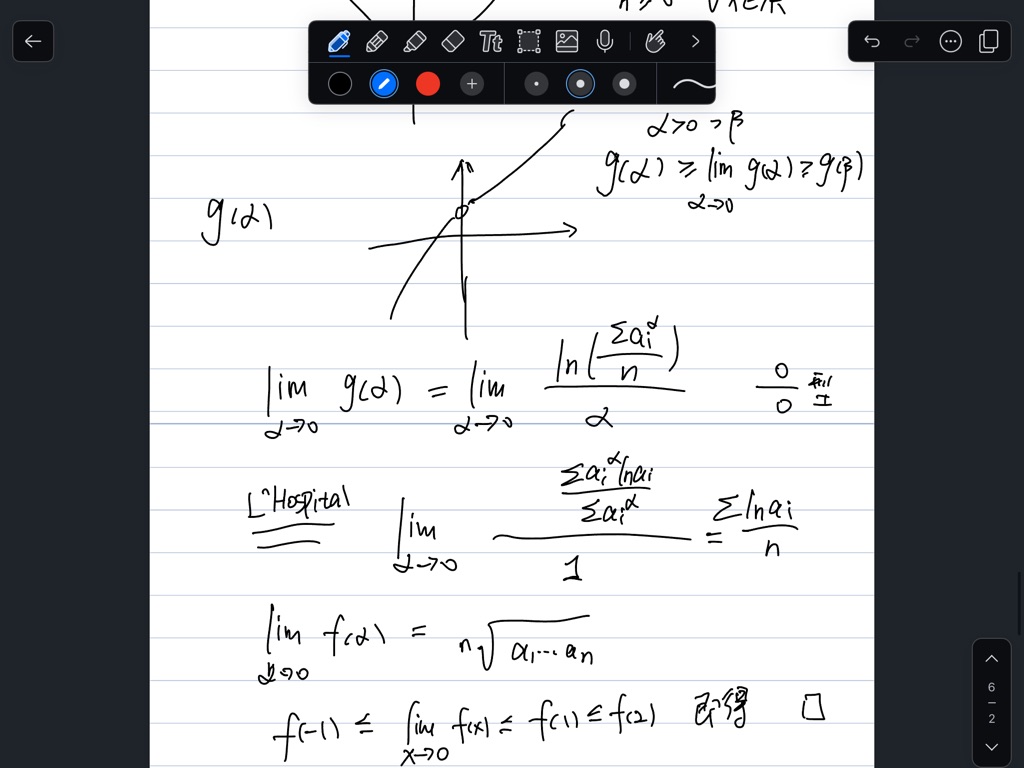 Tt
α>0 >β
g(α) ≥ lim_{α→0} g(α) ≥ g(β)
g(α)
lim_{α→0} g(α) = lim_{α→0} ln(Σa_i^α / n) / α   0/0 型
L'Hospital   lim_{α→0} (Σa_i^α ln a_i / Σa_i^α) / 1 = Σ ln a_i / n
lim_{α→0} f(α) = ⁿ√(a_1...a_n)
f(-1) ≤ lim_{x→0} f(x) ≤ f(1) ≤ f(2) 即得 □
6
2